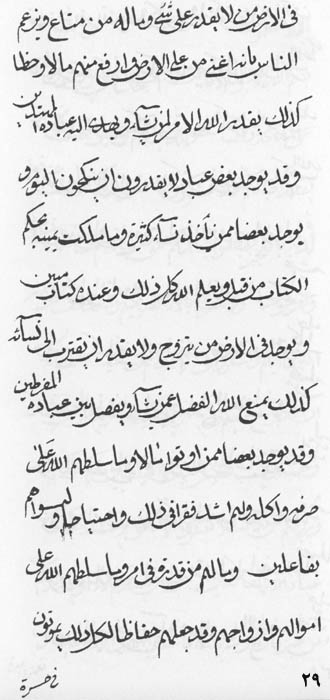 في الارض من لا يقدر على شئ وماله من متاع ويزعم
الناس بانه اغنى من على الارض وارفع منهم مالا وحظا
كذلك يقدر الله الامر لمن يشآء ويهدي اليه عباده المهتدين
وقد يوجد بعض عباد لا يقدرون ان ينكحون اليوم و
يوجد بعضا ممن يأخذ نسآء كثيرة وما ملكت يمينه بحكم
الكتاب من قبل ويعلم الله كل ذلك وعنده كتاب مبين
ويوجد في الارض من يتزوج ولا يقدر ان يقترب الى نسآئه
كذلك يمنع الله الفضل عمن يشآء ويفصل بين عباده المفرطين
وقد يوجد بعضا ممن اوتوا مالا وما سلطهم الله على
صرفه واكله ولهم اشد فقرا في ذلك واحتياجا وليسواهم
بفاعلين ومالهم من قدرة في امر وما سلطهم الله على
اموالهم وازواجهم وقد جعلهم حفاظا لكل ذلك يموتون
في حسرة
٢٩